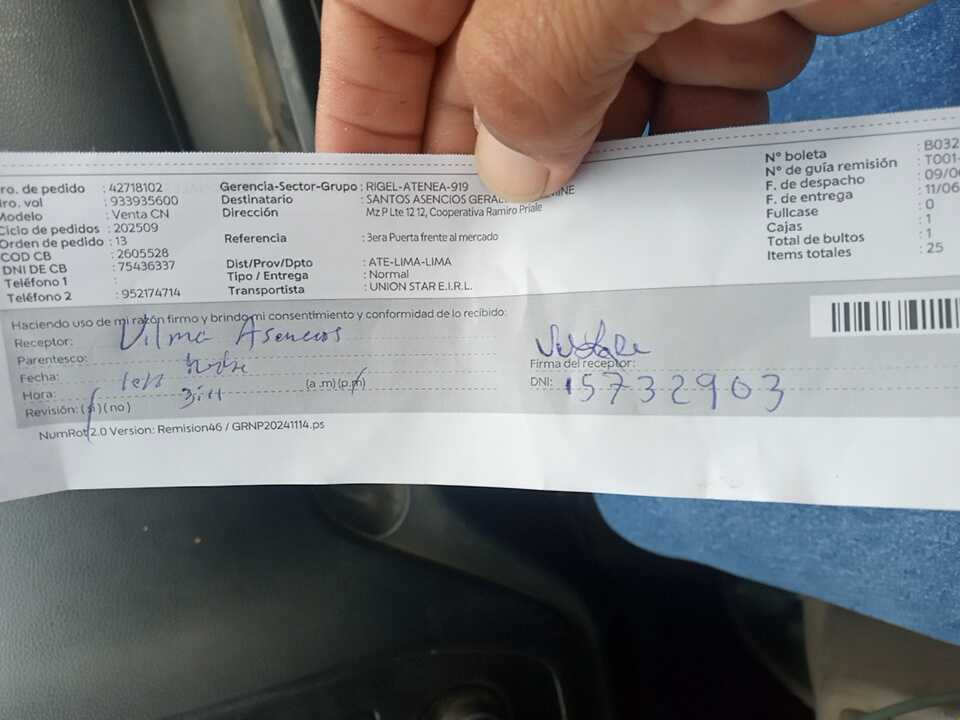 ro. de pedido : 42718102
ro. vol : 933935600
Modelo : Venta CN
Ciclo de pedidos : 202509
Orden de pedido : 13
COD CB : 2605528
DNI DE CB : 75436337
Teléfono 1 :
Teléfono 2 : 952174714
Gerencia-Sector-Grupo : RIGEL-ATENEA-919
Destinatario : SANTOS ASENCIOS GERAL
Dirección Mz P Lte 12 12, Cooperativa Ramiro Priale
Referencia : 3era Puerta frente al mercado
Dist/Prov/Dpto : ATE-LIMA-LIMA
Tipo / Entrega : Normal
Transportista : UNION STAR E.I.R.L.
N° boleta : B032
N° de guía remisión : T001-
F. de despacho : 09/0
F. de entrega : 11/06
Fullcase : 0
Cajas : 1
Total de bultos : 1
Items totales : 25
Haciendo uso de mi razón firmo y brindo mi consentimiento y conformidad de lo recibido:
Receptor: Vilma Asencios
Parentesco:
Fecha:
Hora: (a.m)(p.m)
Revisión: (si)(no)
Firma del receptor:
DNI: 15732903
NumRot 2.0 Version: Remision46 / GRNP20241114.ps